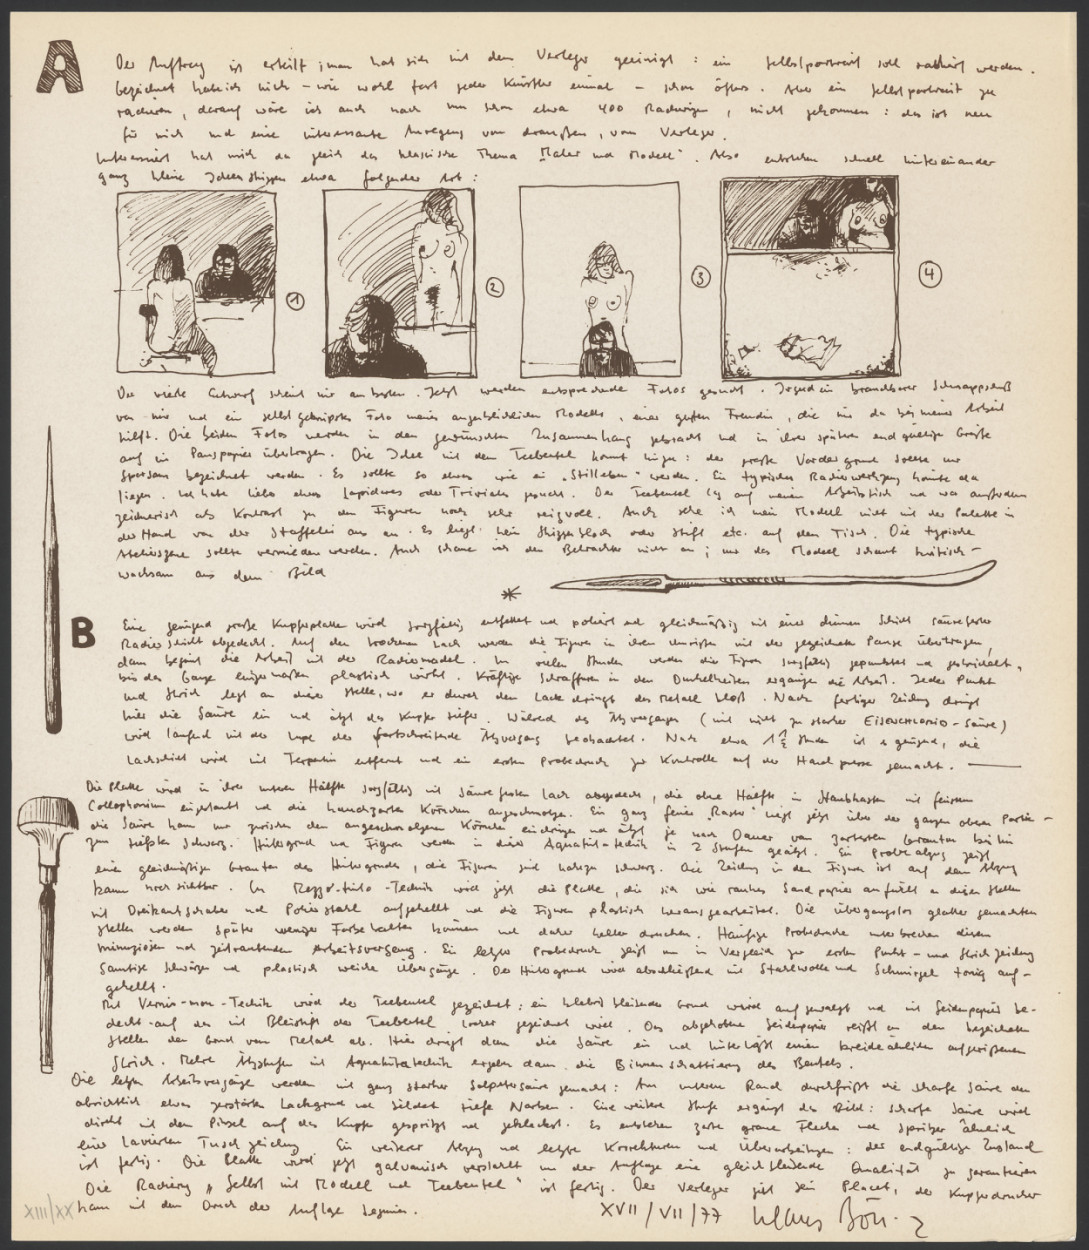 A
Der Auftrag ist erteilt; man hat sich mit dem Verleger geeinigt: ein Selbstportrait soll radiert werden.
Gezeichnet habe ich mich – wie wohl fast jeder Künstler einmal – schon öfters. Aber ein Selbstportrait zu
radieren, darauf wäre ich auch nach nun schon etwa 400 Radierungen, nicht gekommen: das ist neu
für mich und eine interessante Anregung von draußen, vom Verleger.
Interessiert hat mich da gleich das klassische Thema "Maler und Modell". Also entstehen schnell hintereinander
ganz kleine Ideenskizzen etwa folgender Art:
1
2
3
4
Der vierte Entwurf scheint mir am besten. Jetzt werden entsprechende Fotos gesucht. Irgendein brauchbarer Schnappschuß
von mir und ein selbst geknipstes Foto meines augenblicklichen Modells, einer guten Freundin, die mir da bei meiner Arbeit
hilft. Die beiden Fotos werden in den gewünschten Zusammenhang gebracht und in ihrer späteren endgültigen Größe
auf ein Pauspapier übertragen. Die Idee mit dem Teebeutel kommt hinzu: der große Vordergrund sollte nur
sparsam bezeichnet werden. Es sollte so etwas wie ein "Stilleben" werden. Ein typisches Radierwerkzeug könnte da
liegen. Ich habe lieber etwas Lapidares oder Triviales gesucht. Der Teebeutel lag auf meinem Arbeitstisch und war außerdem
zeichnerisch als Kontrast zu den Figuren noch sehr reizvoll. Auch sehe ich mein Modell nicht mit der Palette in
der Hand von der Staffelei aus an. Es liegt kein Skizzenblock oder Stift etc. auf dem Tisch. Die typische
Atelierszene sollte vermieden werden. Auch schaue ich den Betrachter nicht an; nur das Modell schaut kritisch-
wachsam aus dem Bild
*
B
Eine genügend große Kupferplatte wird sorgfältig entfettet und poliert und gleichmäßig mit einer dünnen Schicht säurefester
Radierschicht abgedeckt. Auf den trockenen Lack werden die Figuren in ihren Umrissen mit der gezeichneten Pause übertragen,
dann beginnt die Arbeit mit der Radiernadel. In vielen Stunden werden die Figuren sorgfältig gepunktet und gestrichelt,
bis das Ganze einigermaßen plastisch wirkt. Kräftige Schraffuren in den Dunkelheiten ergänzen die Arbeit. Jeder Punkt
und Strich legt an dieser Stelle, wo er durch den Lack dringt das Metall bloß. Nach fertiger Zeichnung dringt
hier die Säure ein und ätzt das Kupfer tiefer. Während des Ätzvorganges (mit nicht zu starker EISENCHLORID-Säure)
wird laufend mit der Lupe der fortschreitende Ätzvorgang beobachtet. Nach etwa 1½ Stunden ist es genügend, die
Lackschicht wird mit Terpentin entfernt und ein erster Probedruck zur Kontrolle auf der Handpresse gemacht.
Die Platte wird in ihrer unteren Hälfte sorgfältig mit säurefestem Lack abgedeckt, die obere Hälfte im Staubkasten mit feinstem
Collophonium eingestaubt und die hauchzarten Körnchen angeschmolzen. Ein ganz feines "Raster" liegt jetzt über der ganzen oberen Partie –
die Säure kann nur zwischen den angeschmolzenen Körnchen eindringen und ätzt je nach Dauer von zartesten Grautönen bis hin
zum tiefsten Schwarz. Hintergrund und Figuren werden in dieser Aquatinta-technik in 2 Stufen geätzt. Ein Probeabzug zeigt
einen gleichmäßigen Grauton des Hintergrundes, die Figuren sind nahezu schwarz. Die Zeichnung in den Figuren ist auf dem Abzug
kaum noch sichtbar. In Mezzo-tinto-Technik wird jetzt die Platte, die sich wie rauhes Sandpapier anfühlt an diesen Stellen
mit Dreikantschaber und Polierstahl aufgehellt und die Figuren plastisch herausgearbeitet. Die übergangslos glatter gemachten
Stellen werden später weniger Farbe halten können und daher heller drucken. Häufige Probedrucke unterbrechen diesen
minuziösen und zeitraubenden Arbeitsvorgang. Ein letzter Probedruck zeigt nun im Vergleich zur ersten Punkt- und Strichzeichnung
samtige Schwärzen und plastisch weiche Übergänge. Der Hintergrund wird abschließend mit Stahlwolle und Schmirgel tonig auf-
gehellt.
Mit Vernis-mou-Technik wird der Teebeutel gezeichnet: ein klebrig bleibender Grund wird aufgewalzt und mit Seidenpapier be-
deckt auf das mit Bleistift der Teebeutel locker gezeichnet wird. Das abgehobene Seidenpapier reißt an den bezeichneten
Stellen den Grund vom Metall ab. Hier dringt dann die Säure ein und hinterläßt einen kreideähnlichen aufgerissenen
Strich. Mehrere Ätzstufen mit Aquatintatechnik ergeben dann die Binnenschattierung des Beutels.
Die letzten Arbeitsvorgänge werden mit ganz starker Salpetersäure gemacht: Am unteren Rand durchfrißt die scharfe Säure den
absichtlich etwas zerstörten Lackgrund und bildet tiefe Narben. Eine weitere Stufe ergänzt das Bild: scharfe Säure wird
direkt mit dem Pinsel auf das Kupfer gespritzt und gekleckst. Es entstehen zarte graue Flecken und Spritzer ähnlich
einer lavierten Tuschzeichnung. Ein weiterer Abzug und letzte Korrekturen und Überarbeitungen: der endgültige Zustand
ist fertig. Die Platte wird jetzt galvanisch verstahlt um der Auflage eine gleichbleibende Qualität zu garantieren
Die Radierung "Selbst mit Modell und Teebeutel" ist fertig. Der Verleger gibt sein Placet, der Kupferdrucker
kann mit dem Druck der Auflage beginnen.
XIII/XX
XVII/VII/77